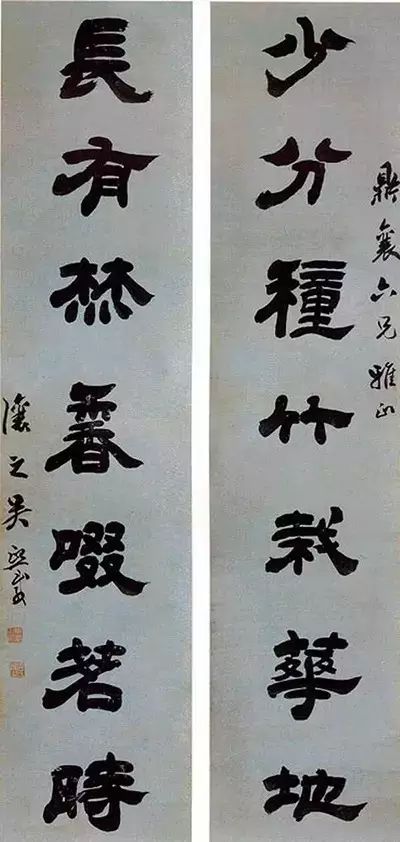 鼎襄六兄雅正
少分種竹栽華地
長有焚香啜茗時
讓之吳熙載